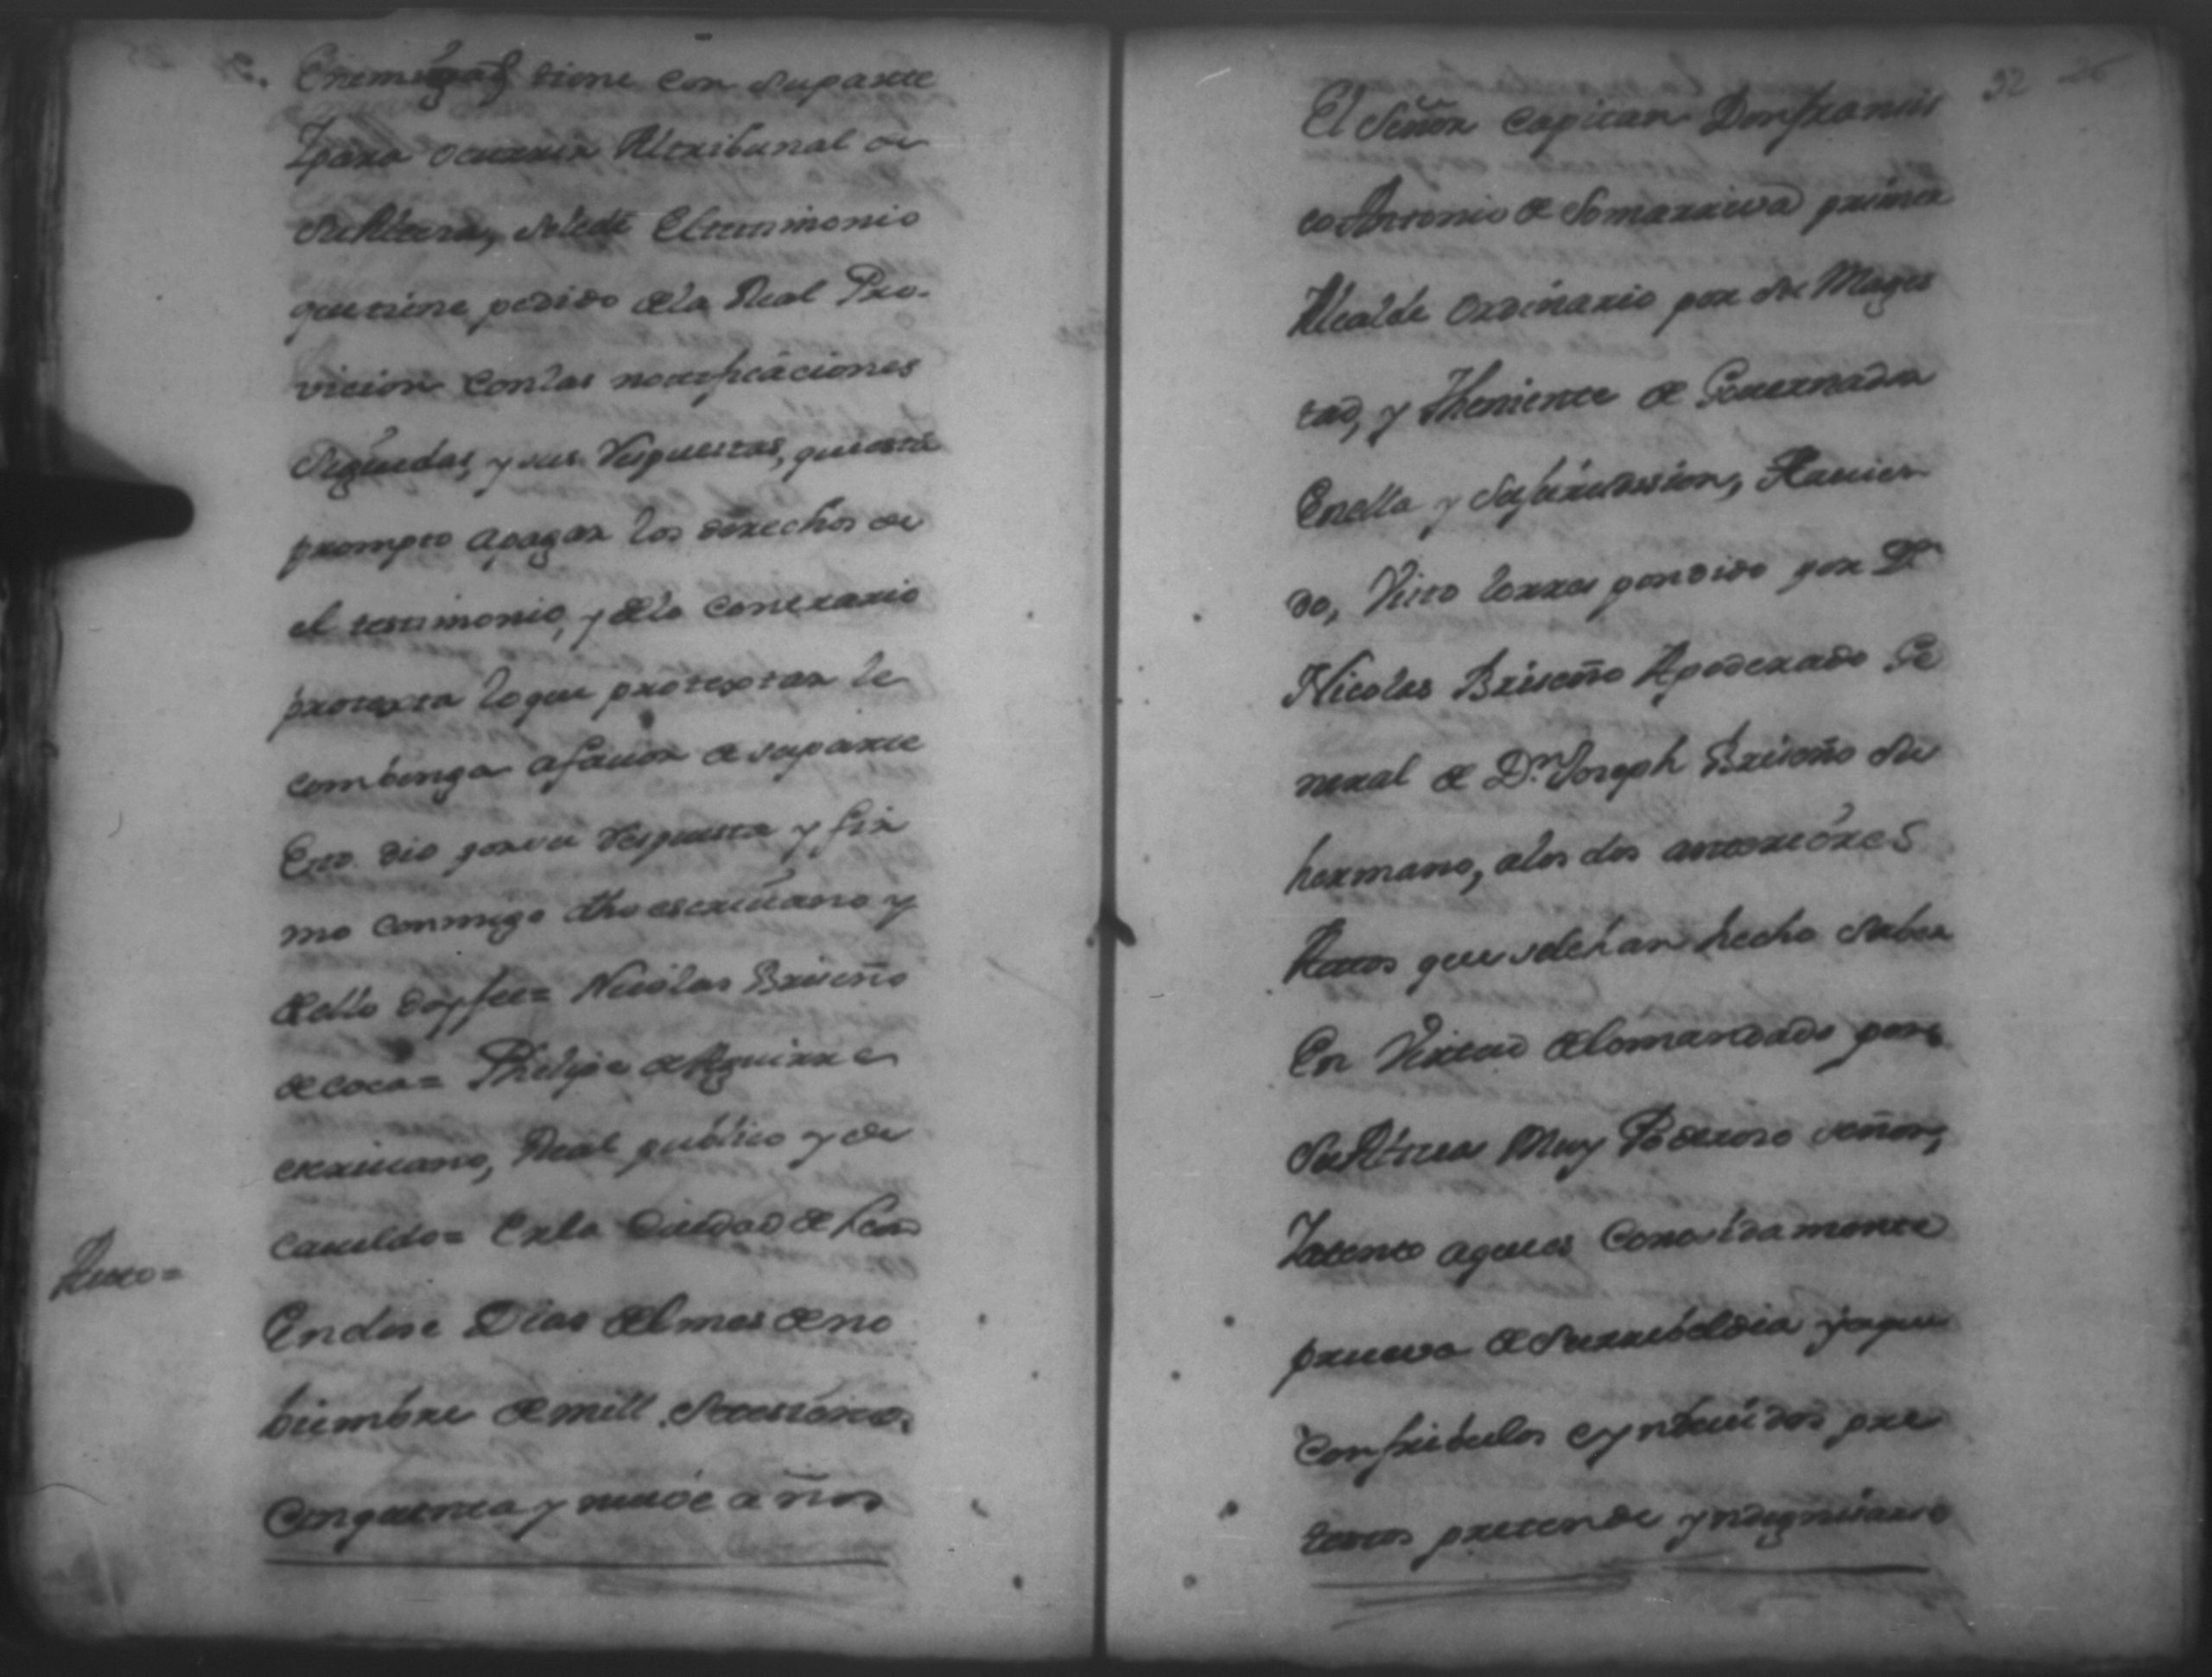 Enemigas tiene con suparte
Ypara ocurrir Altribunal de
suAlteza, sele dé Eltestimonio
quetiene pedido dela Real Pro-
vicion Conlas notificaciones
seguidas, y sus Respuestas, queestá
prompto apagar los derechos de
el testimonio, y delo Contrario
protexta loque protextar le
combenga afauor de suparte
Esto dio porsu Respuesta y fir
mo conmigo dho escriuano y
dello doyfee= Nicolas Briseño
de coca= Phelipe de Aguirre
escriuano, Real publico y de
Cauildo= Enla Ciudad de
Auto=
Endose Dias delmes deno
biembre demill Setesientos
Cinquenta y nueve años
32
El Señor Capitan Donfrancis
co Antonio de Somarriva prime
Alcalde Ordinario por su Mages
tad, y Theniente de Gouernador
Enella y suJurisdision, Hauien
do, Visto loRes pondido por Dn
Nicolas Briseño Apoderado Ge
neral de Dn Joseph Briseño su
hermano, alos dos anteriores
Autos que selehan hecho saber
En Virtud delomandado por
suAlteza Muy Poderoso señor,
Yatento aques Conosidamente
prueva desurrebeldia yaque
Confribulos pre
testos pretende